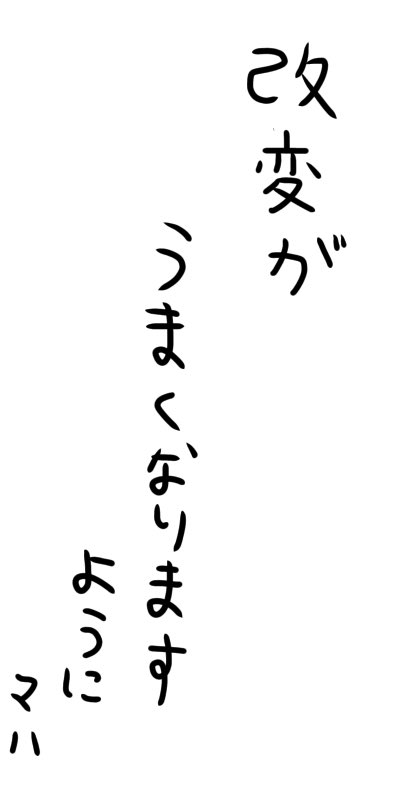 改変が
うまくなります
ように
マハ